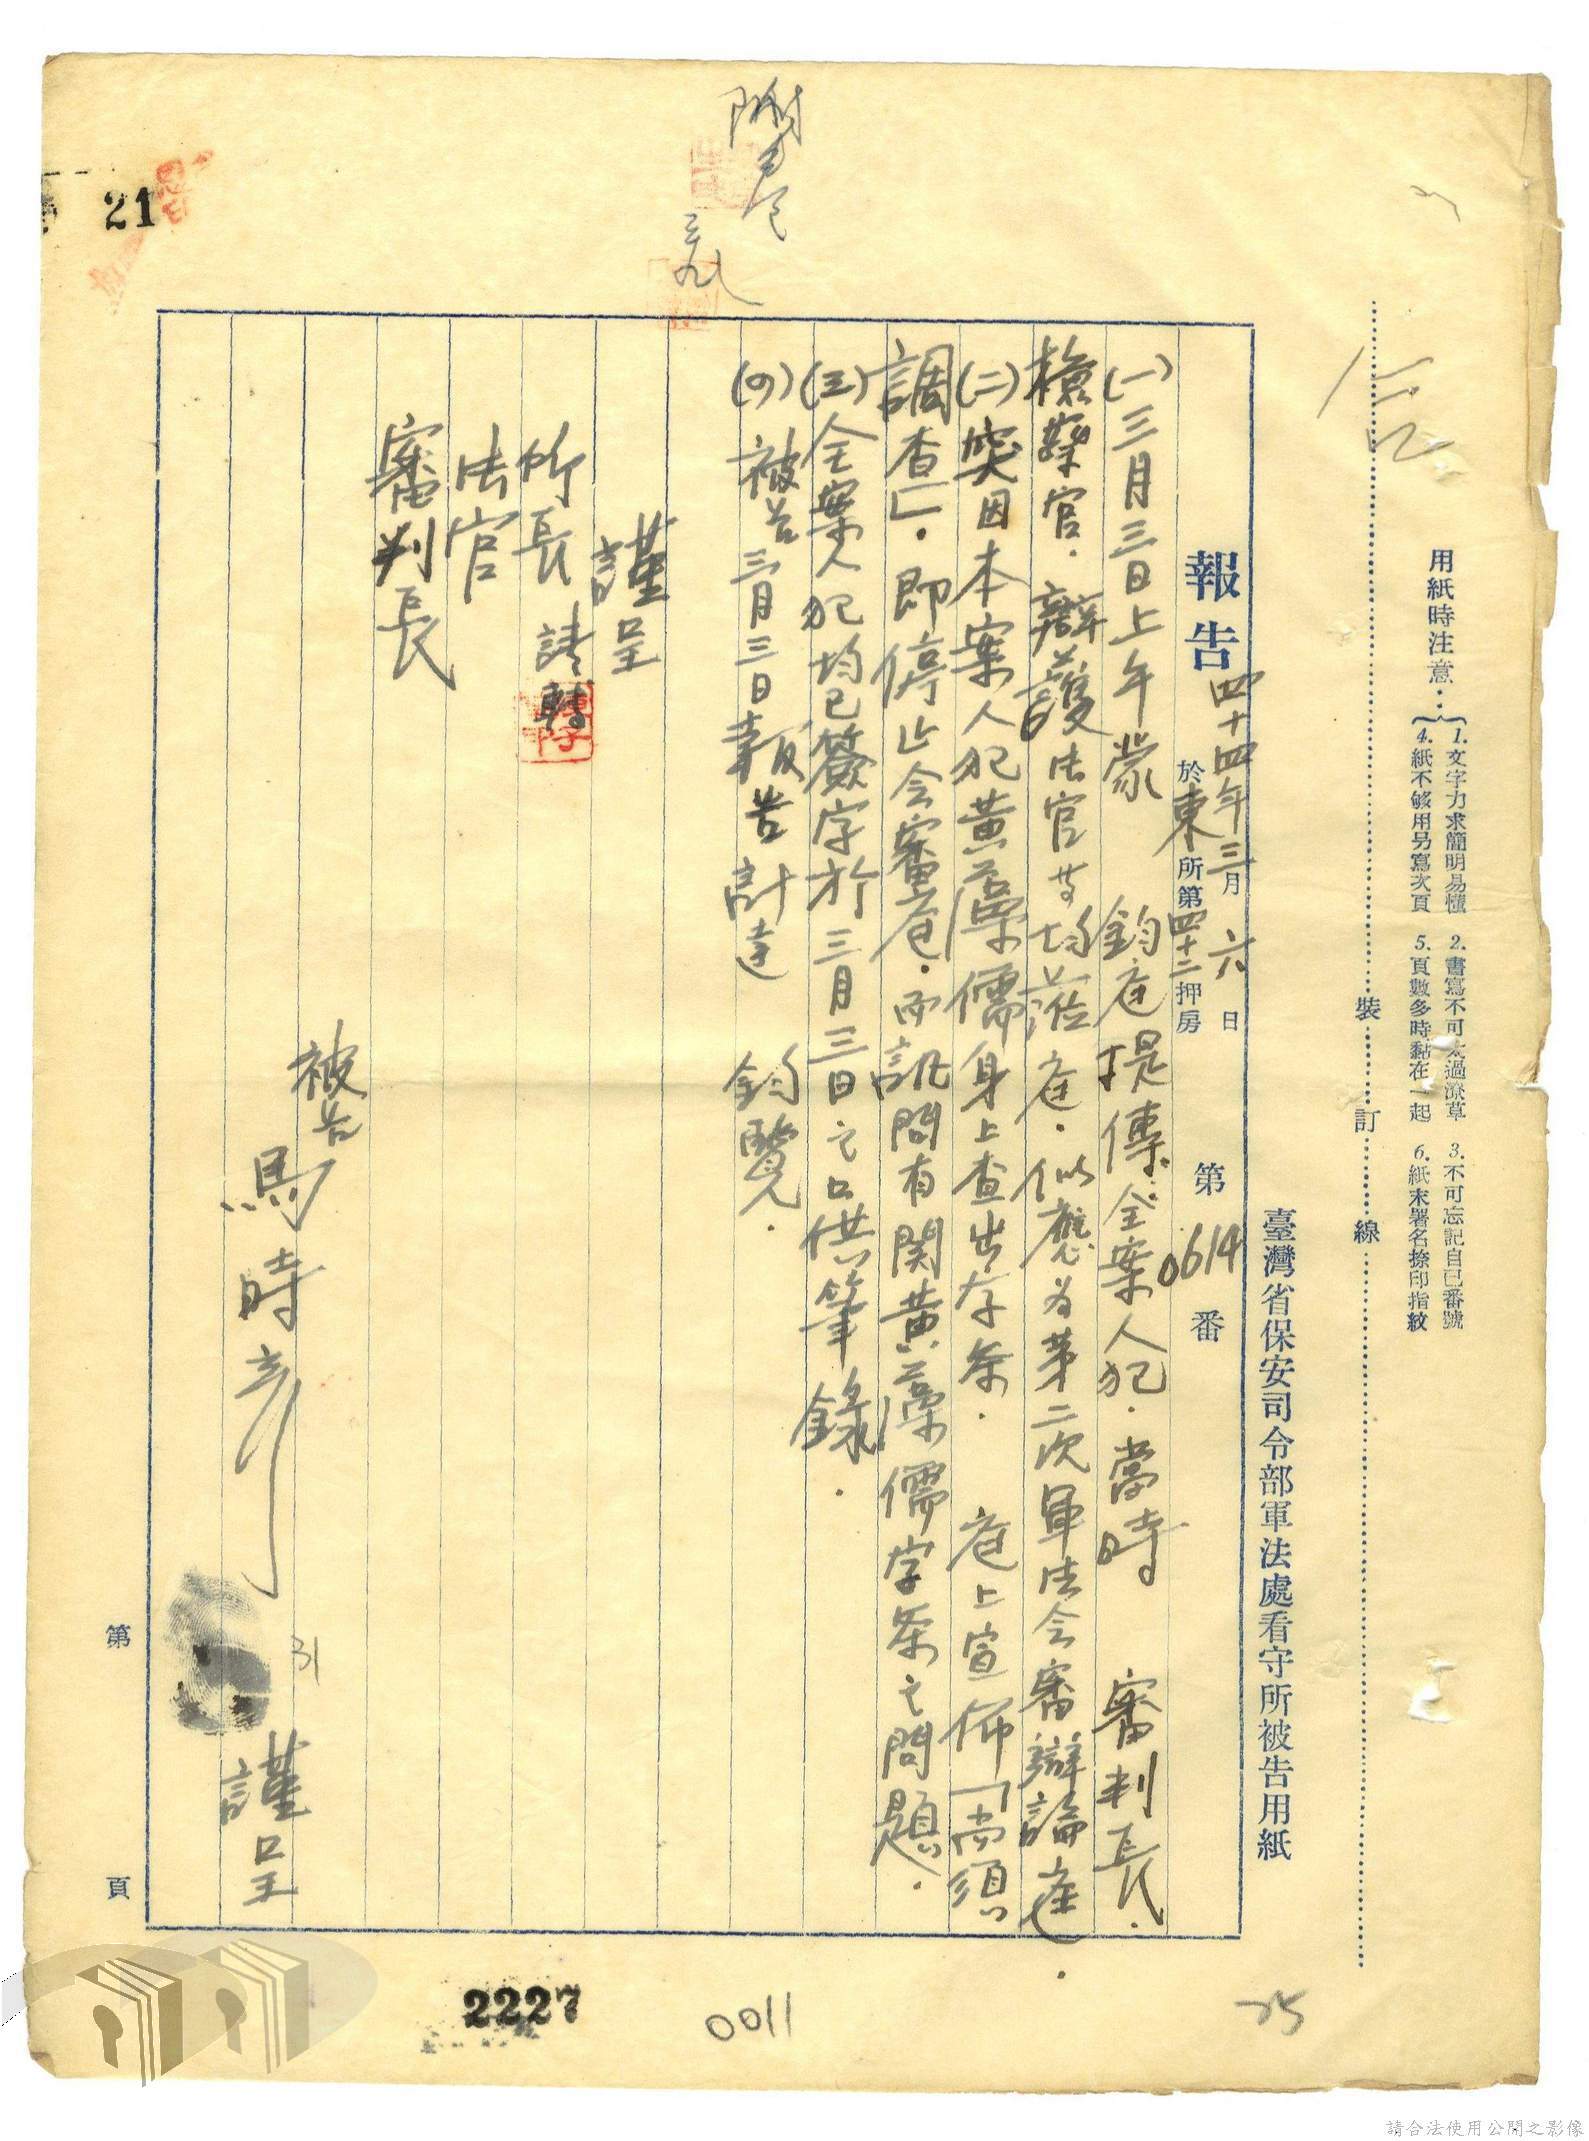 用紙時注意：
1. 文字力求簡明易懂 2. 書寫不可太過潦草 3. 不可忘記自已番號
4. 紙不够用另寫次頁 5. 頁數多時黏在一起 6. 紙末署名捺印指紋
裝訂線
臺灣省保安司令部軍法處看守所被告用紙
報告 四十四年三月六日
於東所第四十二押房
第0614番
(一)三月三日上午蒙 鈞庭提傳全案人犯．當時 審判長．
檢察官．辯護法官等均蒞庭．似應為第二次軍法會審辯論庭．
(二)突因本案人犯黃藻儒身上查出存条． 庭上宣佈「尚須
調查」．即停止會審庭．而訊問有関黃藻儒字条之問題．
(三)全案人犯均已簽字於三月三日之口供筆錄．
(四)被告三月三日報告計達 鈞覽．
謹呈
所長 請轉
法官
審判長
被告
馬時彥
謹呈
附卷
三九
21
31
第 頁
2227
0011
75
請合法使用公開之影像